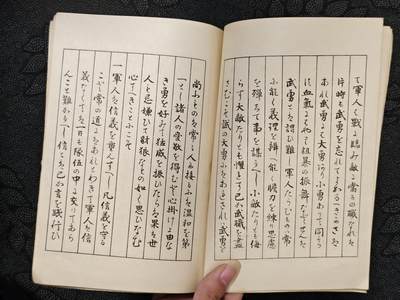 て軍人は戰に臨み敵に當るの職なれは
片時も武勇を忘れてよかるへきかさは
あれ武勇には大勇あり小勇ありて同から
す血氣にはやり粗暴の振舞なとせんは
武勇とは謂ひ難し軍人たらむものは常
に能く義理を辨へ能く膽力を練り思慮
を殫して事を謀るへし小敵たりとも侮
らす大敵たりとも懼れす己か武職を盡
さむこそ誠の大勇にはあれされは武勇を
尚ふものは常々人に接るには温和を第
一とし諸人の愛敬を得むと心掛けよ由な
き勇を好みて猛威を振ひたらは果は世
人も忌嫌ひて豺狼なとの如く思ひなむ
心すへきことにこそ
一軍人は信義を重んすへし凡信義を守る
こと常の道にはあれとわきて軍人は信
義なくては一日も隊伍の中に交りてあら
んこと難かるへし信とは己か言を踐行ひ